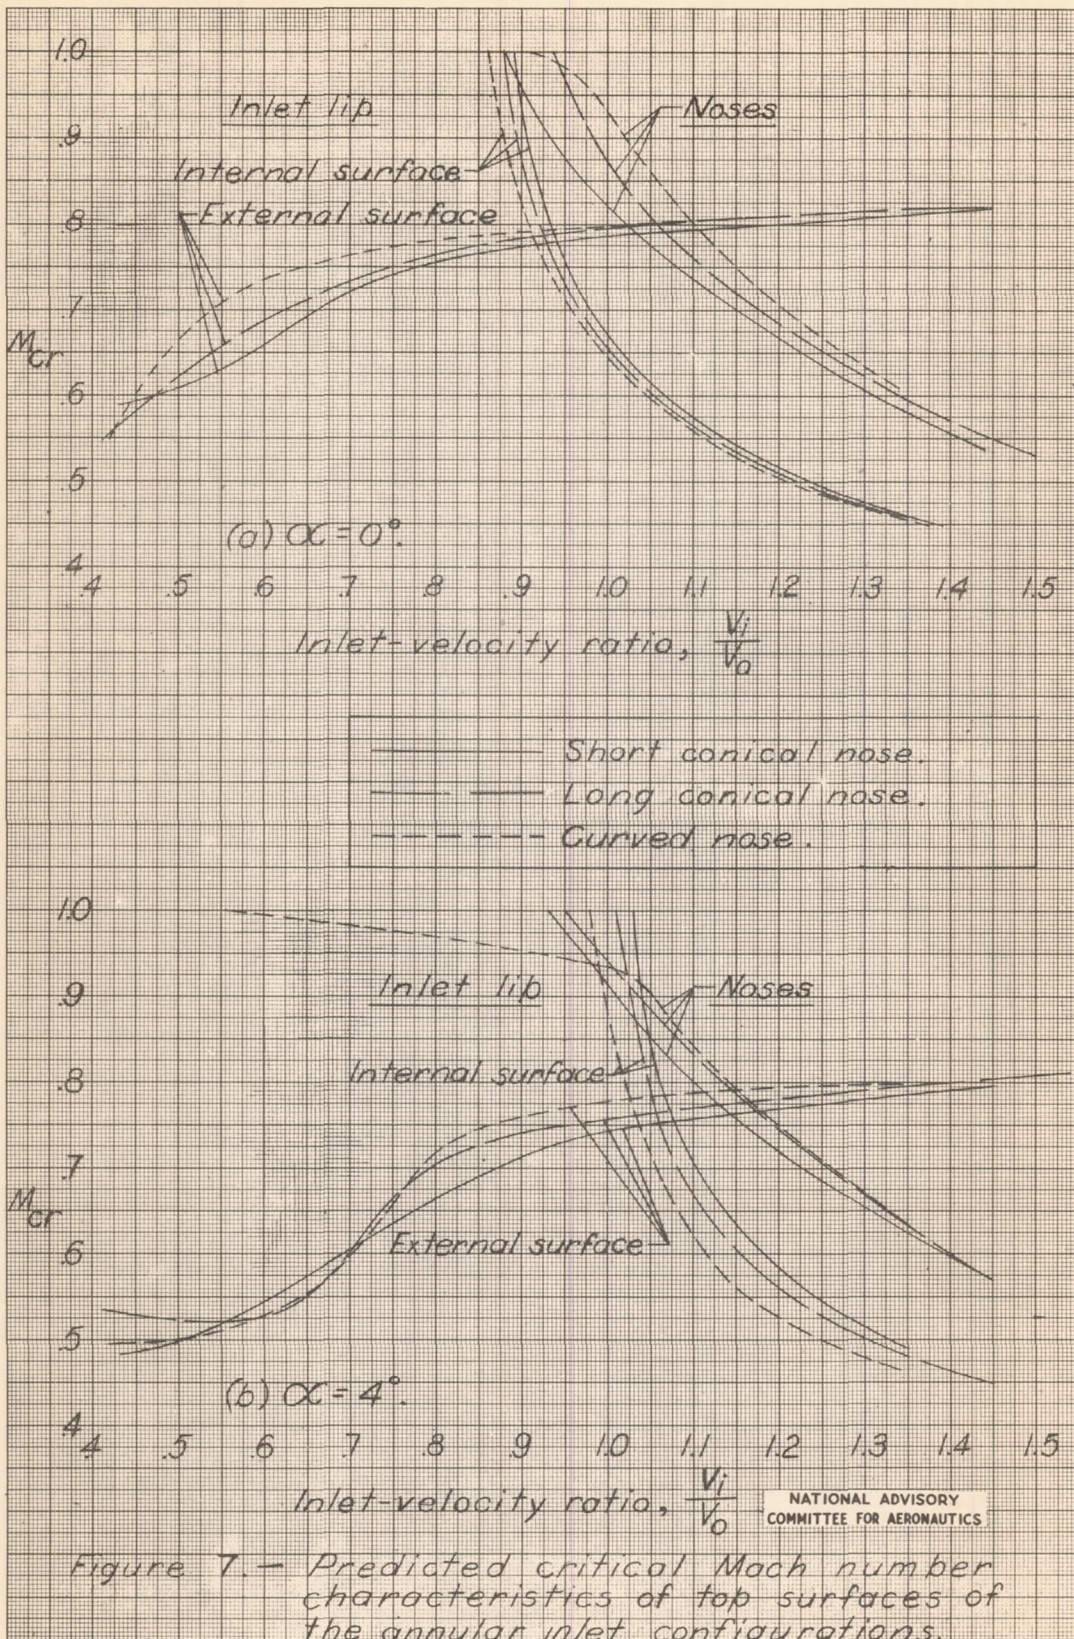 1.0
Inlet lip
Noses
.9
Internal surface
.8
External surface
.7
Mcr
.6
.5
(a) α = 0°.
.4
.4 .5 .6 .7 .8 .9 1.0 1.1 1.2 1.3 1.4 1.5
Inlet-velocity ratio, Vi/Vo
Short conical nose.
Long conical nose.
Curved nose.
1.0
.9
Inlet lip
Noses
.8
Internal surface
.7
Mcr
.6
External surface
.5
(b) α = 4°.
.4
.4 .5 .6 .7 .8 .9 1.0 1.1 1.2 1.3 1.4 1.5
Inlet-velocity ratio, Vi/Vo
NATIONAL ADVISORY
COMMITTEE FOR AERONAUTICS
Figure 7.— Predicted critical Mach number
characteristics of top surfaces of
the annular inlet configurations.